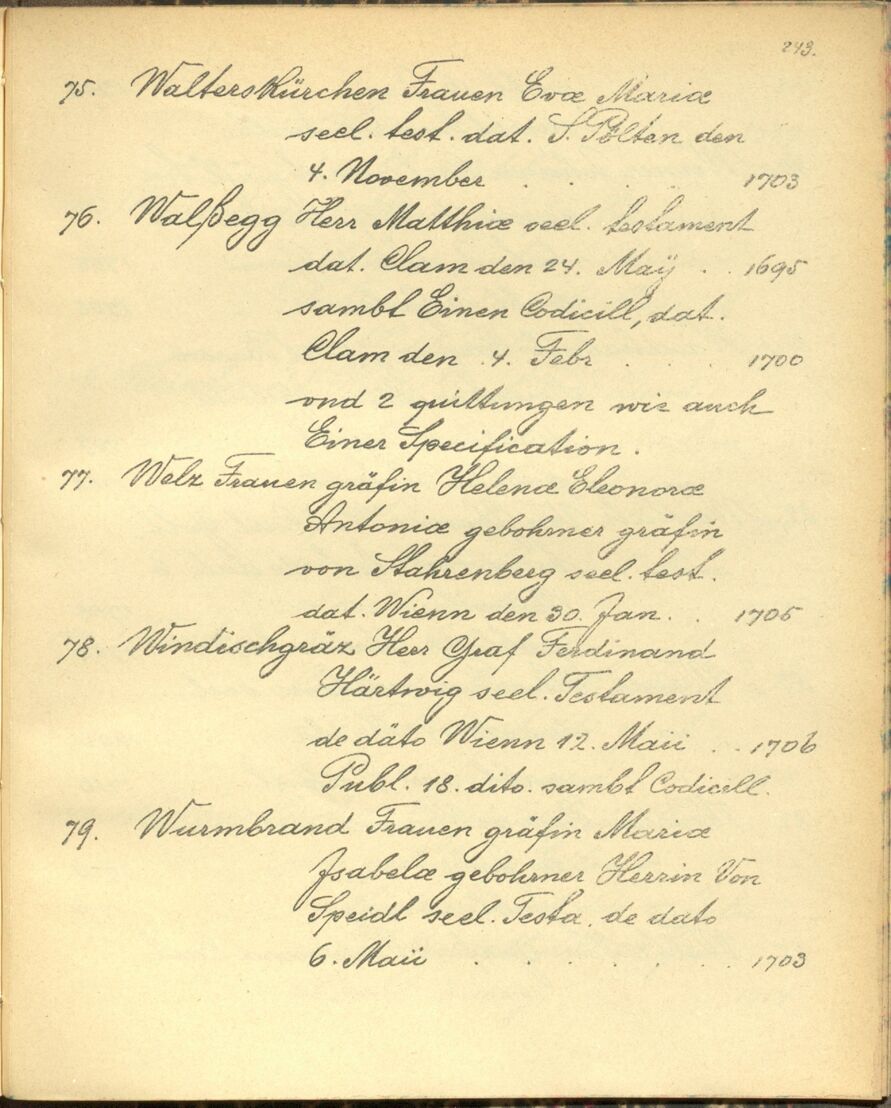 243.
75. Walterskürchen Frauen Evæ Mariæ
seel. test. dat. S. Pölten den
4. November . . . . 1703
76. Walßegg Herr Matthiæ seel. testament
dat. Clam den 24. Maÿ . . 1695
sambt Einen Codicill, dat.
Clam den 4. Febr . . . 1700
vnd 2 quittungen wie auch
Einer Specification.
77. Welz Frauen gräfin Helenæ Eleonoræ
Antoniæ gebohrner gräfin
von Stahrenberg seel. test.
dat. Wienn den 30. Jan. . 1705
78. Windischgräz Herr Graf Ferdinand
Härtwig seel. Testament
de däto Wienn 12. Maii . . 1706
Publ. 18. dito. sambt Codicill.
79. Wurmbrand Frauen gräfin Mariæ
Jsabelæ gebohrner Herrin Von
Speidl seel. Testa. de dato
6. Maii . . . . . . 1703